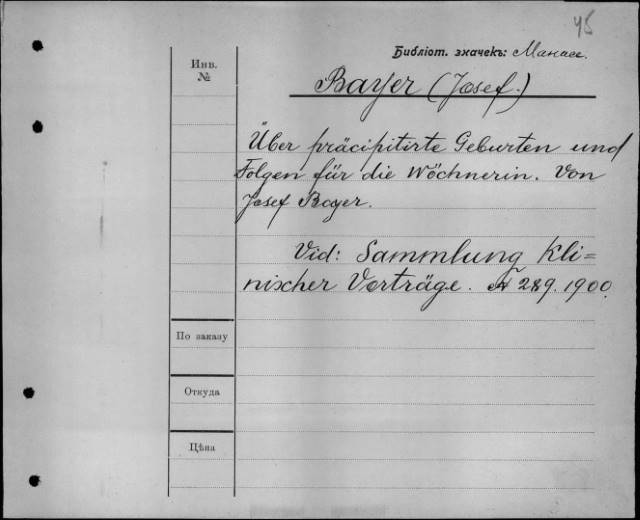 45
Библіот. значекъ: Манасс.
Инв.
№
Bayer (Josef.)
Über präcipitirte Geburten und
Folgen für die Wöchnerin. Von
Josef Bayer.
Vid: Sammlung Kli=
nischer Vorträge. № 289. 1900.
По заказу
Откуда
Цѣна